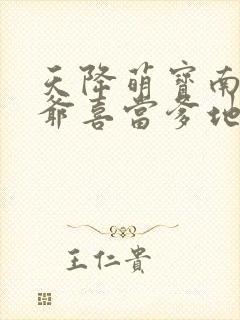 天降萌寶南
爺喜當爹地
王仁貴